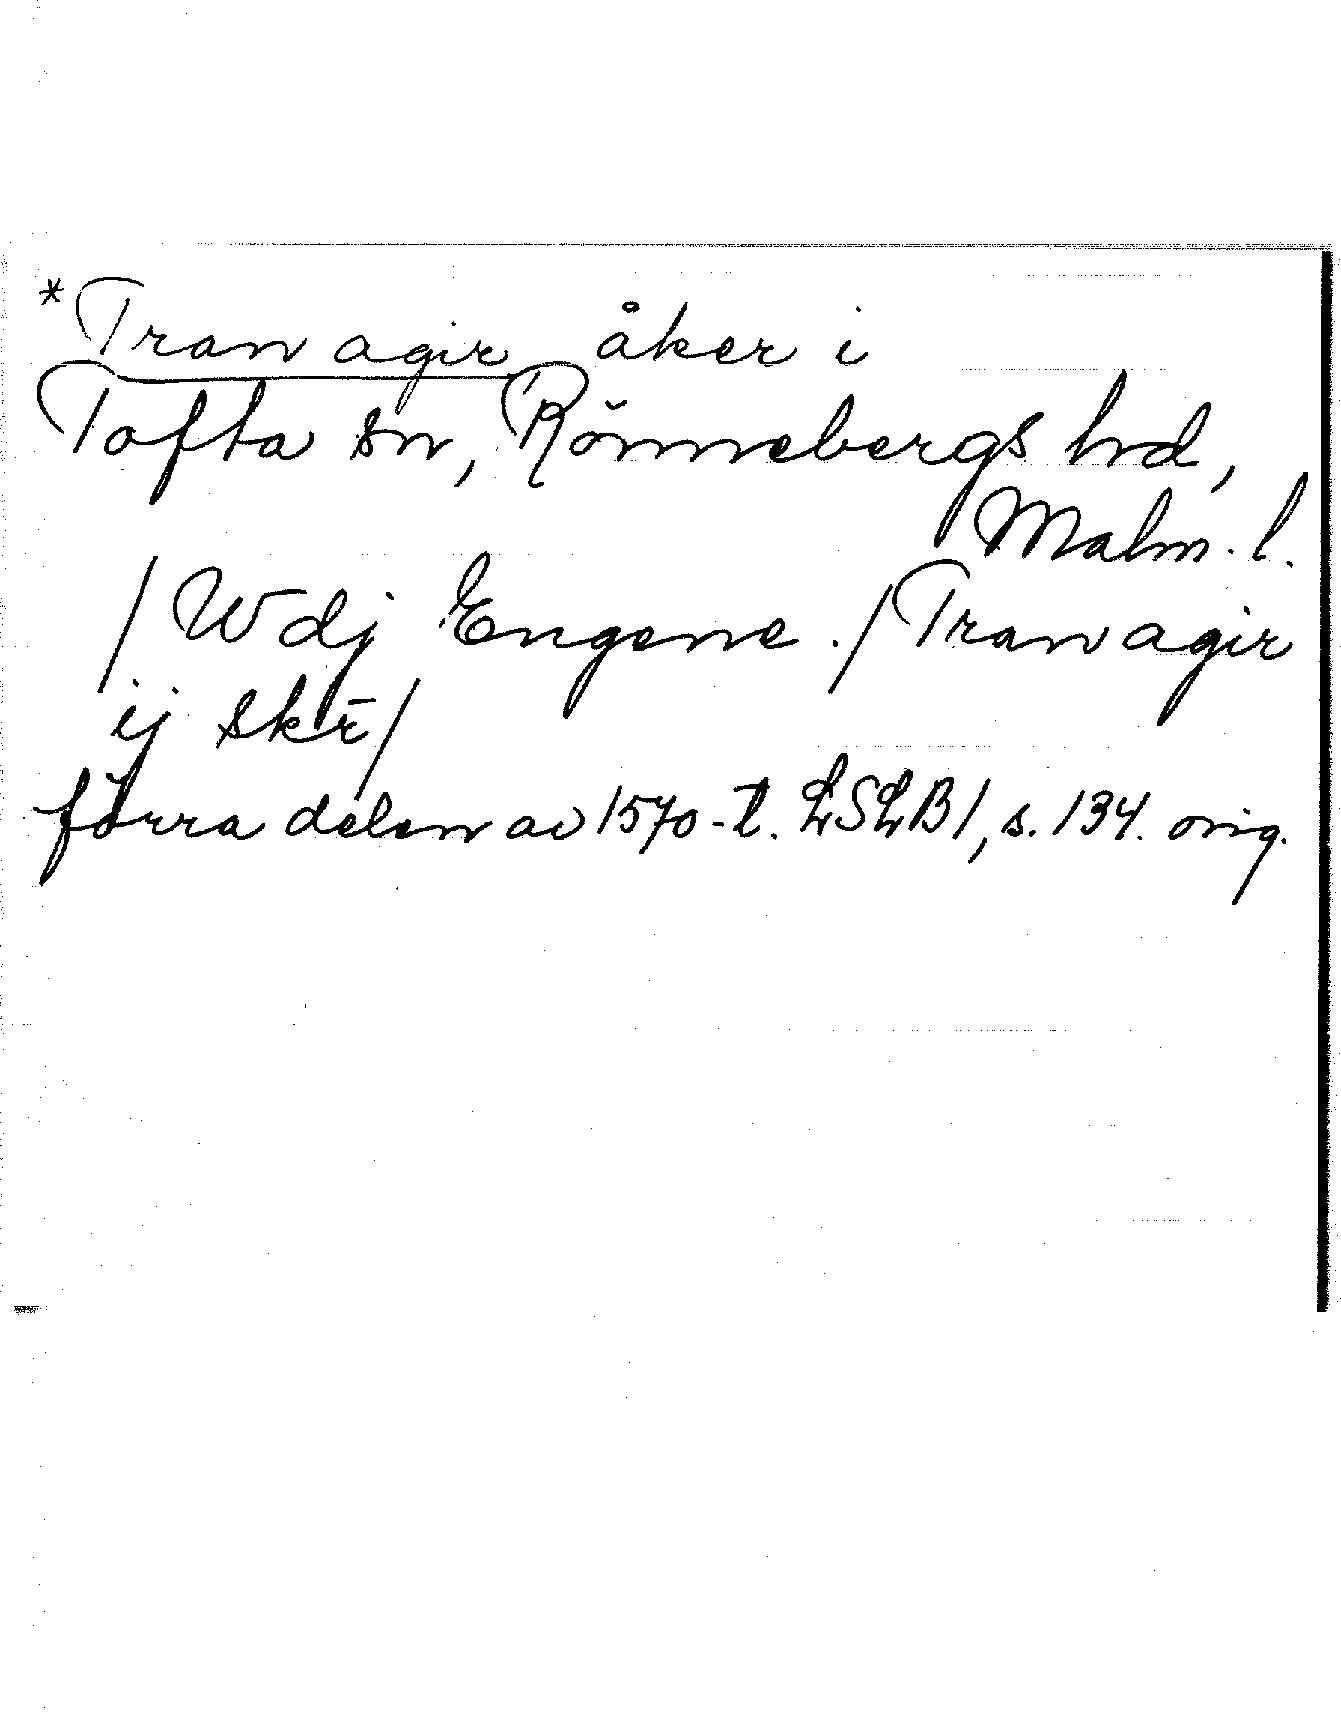 *Tranagir åker i
Tofta sn, Rönnebergs hd,
Malm. l.
/Wdj Engene./Tranagir
ij skr̄/
förra delen av 1570-t. LSLB1, s. 134. orig.